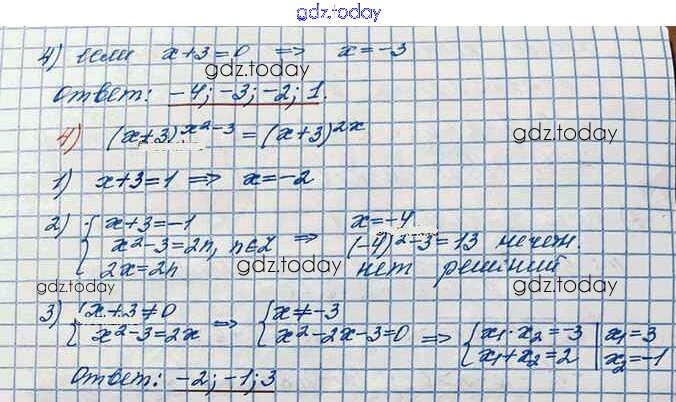 gdz.today
4) если x+3=0 ⇒ x=-3
gdz.today
Ответ: -4; -3; -2; 1.
4) (x+3)^{x²-3} = (x+3)^{2x}
gdz.today
1) x+3=1 ⇒ x=-2
2) { x+3=-1
x²-3=2n, n∈Z
2x=2n
⇒ x=-4
(-4)²-3=13 нечет.
нет решений
gdz.today
gdz.today
gdz.today
3) { x+3≠0
x²-3=2x
⇒ { x≠-3
x²-2x-3=0
⇒ { x₁·x₂=-3 | x₁=3
x₁+x₂=2 | x₂=-1
Ответ: -2; -1; 3
gdz.today